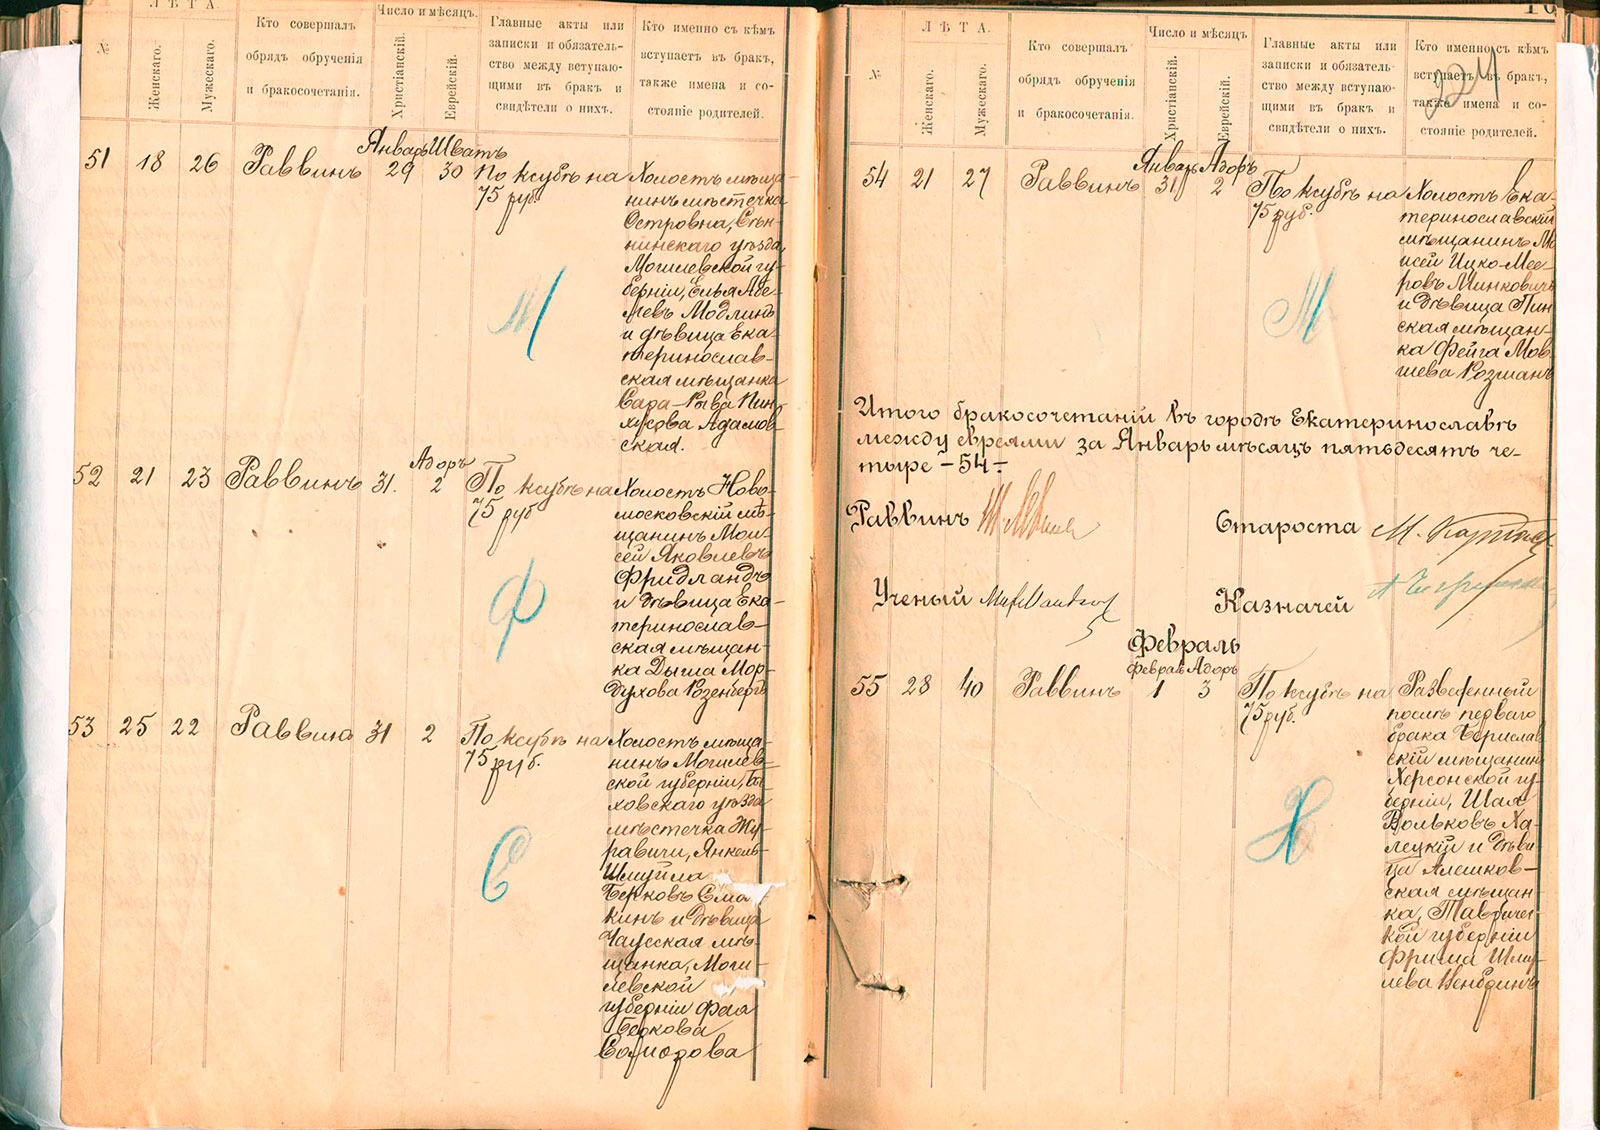 Л Ѣ Т А.
№
Женскаго.
Мужескаго.
Кто совершалъ
обрядъ обрученія
и бракосочетанія.
Число и мѣсяцъ.
Христіанскій.
Еврейскій.
Главные акты или
записки и обязатель-
ство между ветупаю-
щими въ бракъ и
свидѣтели о нихъ.
Кто именно съ кѣмъ
вступаетъ въ бракъ,
также имена и со-
стояніе родителей.
Январь Шватъ
51 18 26 Раввинъ 29 30 По ксубѣ на
75 руб.
Холостъ мѣща-
нинъ мѣстечка
Островна, Сѣн-
нинскаго уѣзда
Могилевской гу-
берніи, Елья Абе-
левъ Модлинъ
и дѣвица Ека-
теринослав-
ская мѣщанка
Сара-Рыва Пин-
хусова Адамов-
ская.
Адоръ
52 21 23 Раввинъ 31. 2 По ксубѣ на
75 руб
Холостъ Ново-
московскій мѣ-
щанинъ Мои-
сей Яковлевъ
Фридландъ
и дѣвица Ека-
теринослав-
ская мѣщан-
ка Дыша Мор-
духова Розенбергъ
53 25 22 Раввинъ 31 2 По ксубѣ на
75 руб.
Холостъ мѣща-
нинъ Могилев-
ской губерніи, Бы-
ховскаго уѣзда
мѣстечка Жу-
равичи, Янкель-
Шмуйла
Берковъ Сма-
кинъ и дѣвица
Чаусская мѣ-
щанка, Моги-
левской
губерніи Фая
Беркова
М
Ф
С
224
Л Ѣ Т А.
№
Женскаго.
Мужескаго.
Кто совершалъ
обрядъ обрученія
и бракосочетанія.
Число и мѣсяцъ
Христіанскій.
Еврейскій.
Главные акты или
записки и обязатель-
ство между вступаю-
щими въ бракъ и
свидѣтели о нихъ.
Кто именно съ кѣмъ
вступаетъ въ бракъ,
также имена и со-
стояніе родителей.
Январь Адоръ
54 21 27 Раввинъ 31 2 По ксубѣ на
75 руб.
Холостъ Ека-
теринославскій
мѣщанинъ Мо
исей Ицко-Мее-
ровъ Минковичъ
и дѣвица Пин
ская мѣщан-
ка Фейга Мов
шева Розманъ
М
Итого бракосочетаній въ городѣ Екатеринославѣ
между евреями за Январь мѣсяцъ пятьдесятъ че-
тыре - 54 -
Раввинъ
Староста М.
Ученый
Казначей
Февраль
Февраль Адоръ
55 28 40 Раввинъ 1 3 По ксубѣ на
75 руб.
Разведенный
послѣ перваго
брака Берислав
скій мѣщанинъ
Херсонской гу-
берніи, Шая
Вольковъ Ха-
лецкій и дѣви
ца Алешков-
ская мѣщан-
ка, Тавричес
кой губерніи
Фрима Шму-
лева
Х